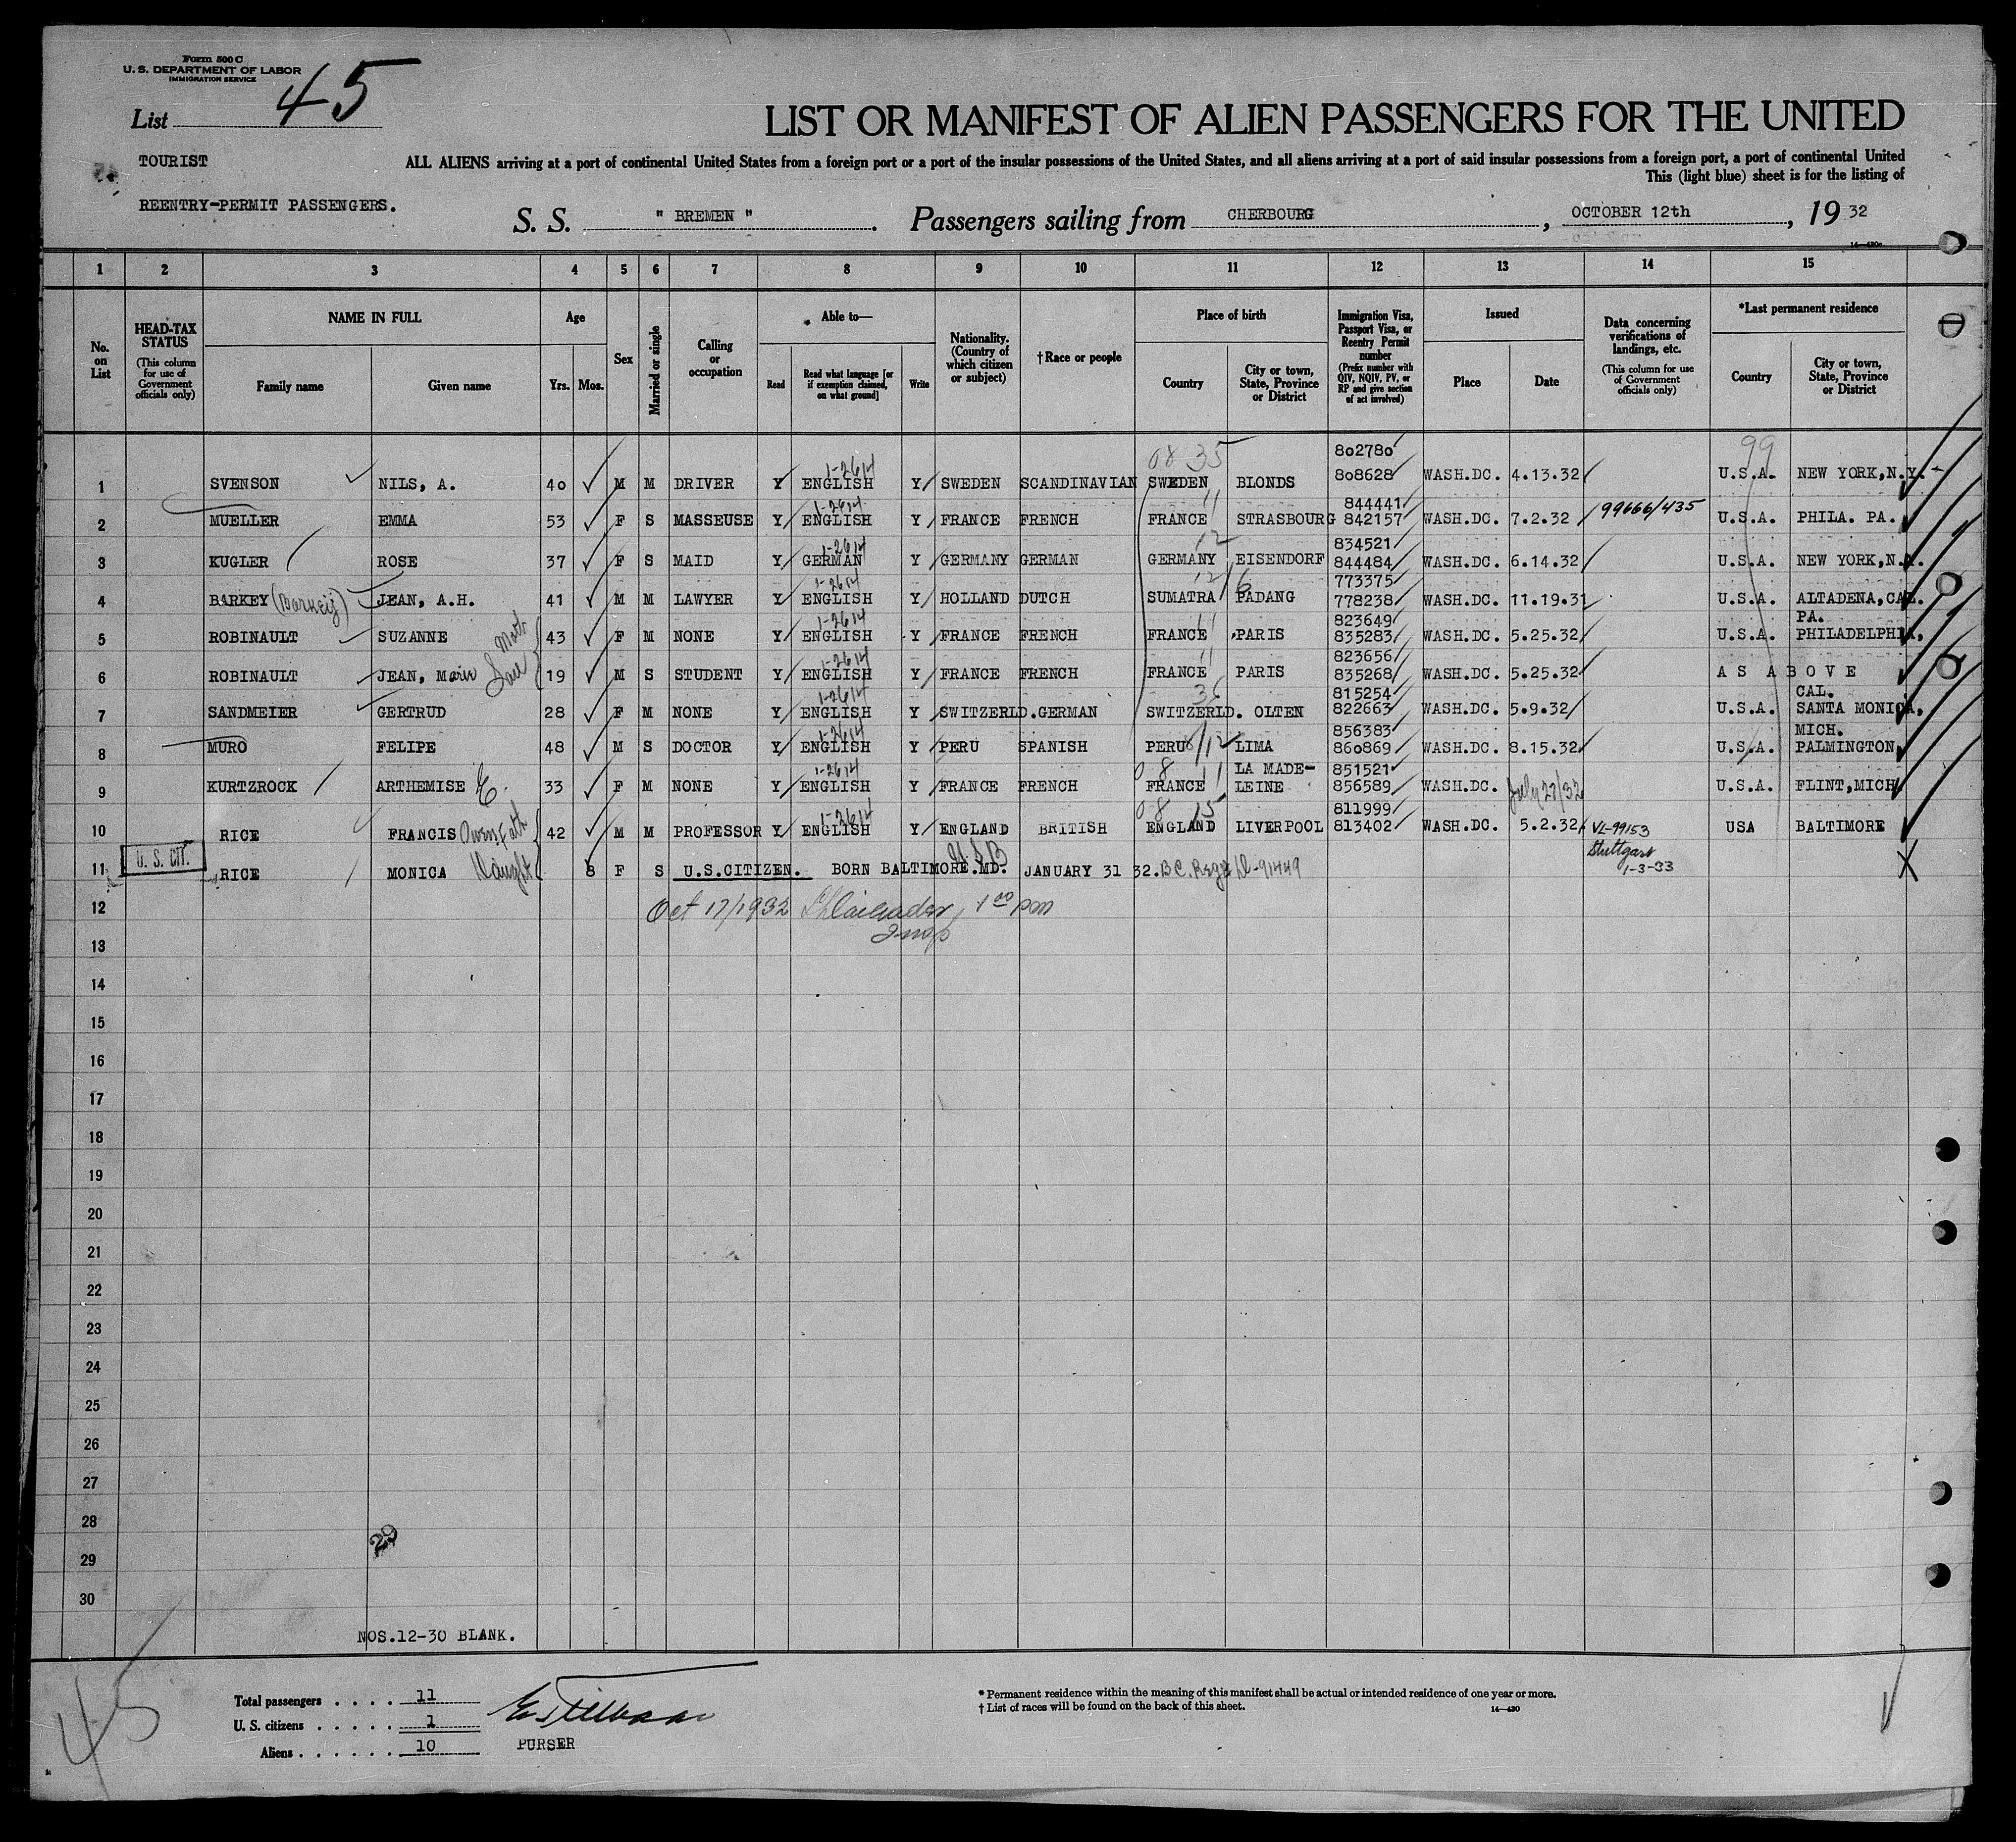 Form 500 C
U. S. DEPARTMENT OF LABOR
IMMIGRATION SERVICE
List 45
LIST OR MANIFEST OF ALIEN PASSENGERS FOR THE UNITED
TOURIST
ALL ALIENS arriving at a port of continental United States from a foreign port or a port of the insular possessions of the United States, and all aliens arriving at a port of said insular possessions from a foreign port, a port of continental United
This (light blue) sheet is for the listing of
REENTRY-PERMIT PASSENGERS.
S. S. " BREMEN " . Passengers sailing from CHERBOURG , OCTOBER 12th , 19 32
1 2 3 4 5 6 7 8 9 10 11 12 13 14 15
No. on List
HEAD-TAX STATUS (This column for use of Government officials only)
NAME IN FULL
Family name Given name
Age
Yrs. Mos.
Sex
Married or single
Calling or occupation
Able to—
Read Read what language [or if exemption claimed, on what ground] Write
Nationality. (Country of which citizen or subject)
†Race or people
Place of birth
Country City or town, State, Province or District
Immigration Visa, Passport Visa, or Reentry Permit number (Prefix number with QIV, NQIV, PV, or RP and give section of act involved)
Issued
Place Date
Data concerning verifications of landings, etc. (This column for use of Government officials only)
*Last permanent residence
Country City or town, State, Province or District
08 35 802780 99
1-2614
1 SVENSON NILS, A. 40 M M DRIVER Y ENGLISH Y SWEDEN SCANDINAVIAN SWEDEN BLONDS 808628 WASH.DC. 4.13.32 U.S.A. NEW YORK,N.Y.
1-2614 11 844441
2 MUELLER EMMA 53 F S MASSEUSE Y ENGLISH Y FRANCE FRENCH FRANCE STRASBOURG 842157 WASH.DC. 7.2.32 99666/435 U.S.A. PHILA. PA.
1-2614 12 834521
3 KUGLER ROSE 37 F S MAID Y GERMAN Y GERMANY GERMAN GERMANY EISENDORF 844484 WASH.DC. 6.14.32 U.S.A. NEW YORK,N.Y.
1-2614 12/6 773375
4 BARKEY (Barkeij) JEAN, A.H. 41 M M LAWYER Y ENGLISH Y HOLLAND DUTCH SUMATRA PADANG 778238 WASH.DC. 11.19.31 U.S.A. ALTADENA,CAL.
1-2614 11 823649 PA.
5 ROBINAULT SUZANNE Moth 43 F M NONE Y ENGLISH Y FRANCE FRENCH FRANCE PARIS 835283 WASH.DC. 5.25.32 U.S.A. PHILADELPHIA,
1-2614 11 823656
6 ROBINAULT JEAN, Marie 19 M S STUDENT Y ENGLISH Y FRANCE FRENCH FRANCE PARIS 835268 WASH.DC. 5.25.32 A S A B O V E
1-2614 36 815254 CAL.
7 SANDMEIER GERTRUD 28 F M NONE Y ENGLISH Y SWITZERLD. GERMAN SWITZERLD. OLTEN 822663 WASH.DC. 5.9.32 U.S.A. SANTA MONICA,
1-2614 856383 MICH.
8 MURO FELIPE 48 M S DOCTOR Y ENGLISH Y PERU SPANISH PERU LIMA 860869 WASH.DC. 8.15.32 U.S.A. PALMINGTON
1-2614 08 11 LA MADE- 851521
9 KURTZROCK ARTHEMISE E. 33 F M NONE Y ENGLISH Y FRANCE FRENCH FRANCE LEINE 856589 WASH.DC. July 27/32 U.S.A. FLINT,MICH
1-2614 08 15 811999
10 RICE FRANCIS Owen Fath 42 M M PROFESSOR Y ENGLISH Y ENGLAND BRITISH ENGLAND LIVERPOOL 813402 WASH.DC. 5.2.32 VL-99153 USA BALTIMORE
Stuttgart
1-3-33
U. S. CIT.
USB
11 RICE MONICA Daught 8 F S U.S.CITIZEN. BORN BALTIMORE.MD. JANUARY 31 32. X
12 Oct 17/1932 1 00 pm
Insp
13
14
15
16
17
18
19
20
21
22
23
24
25
26
27
28
29
29
30
NOS.12-30 BLANK.
45
Total passengers . . . . 11
U. S. citizens . . . . . 1
Aliens . . . . . . 10
PURSER
* Permanent residence within the meaning of this manifest shall be actual or intended residence of one year or more.
† List of races will be found on the back of this sheet.
14—430